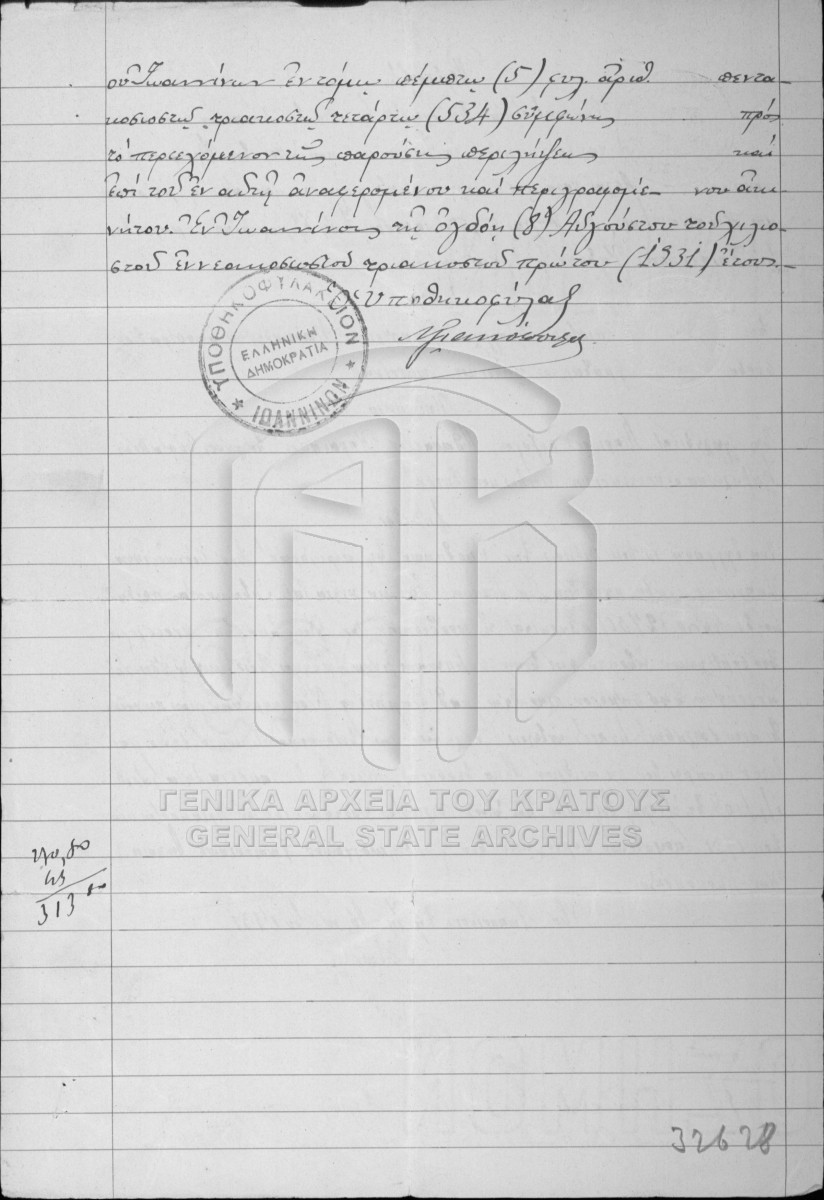 ου Ἰωαννίνων ἐν τόμῳ πέμπτῳ (5) φυλ. ἀριθ. πεντα-
κοσιοστῷ τριακοστῷ τετάρτῳ (534) συμφώνως πρός
τό περιεχόμενον τῆς παρούσης περιλήψεως καί
ἐπί τοῦ ἐν αὐτῇ ἀναφερομένου καί περιγραφομέ- νου ἀκι-
νήτου. Ἐν Ἰωαννίνοις τῇ ὀγδόῃ (8ῃ) Αὐγούστου τοῦ χιλιο-
στοῦ ἐννεακοσιοστοῦ τριακοστοῦ πρώτου (1931) ἔτους.-
Ὁ Ὑποθηκοφύλαξ
ΥΠΟΘΗΚΟΦΥΛΑΚΕΙΟΝ
ΕΛΛΗΝΙΚΗ
ΔΗΜΟΚΡΑΤΙΑ
* ΙΩΑΝΝΙΝΩΝ *
ΓΕΝΙΚΑ ΑΡΧΕΙΑ ΤΟΥ ΚΡΑΤΟΥΣ
GENERAL STATE ARCHIVES
313
32628